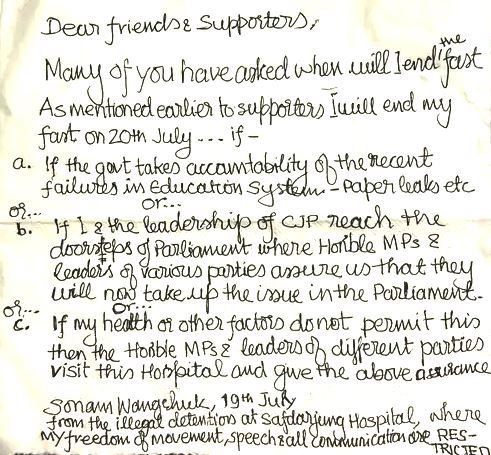 Dear friends & Supporters,
Many of you have asked when will I end the fast
As mentioned earlier to supporters I will end my
fast on 20th July .... if -
a. If the govt takes accountability of the recent
failures in Education System - Paper leaks etc
or... or...
b. If I & the leadership of CJP reach the
doorsteps of Parliament where Hon'ble MPs &
leaders of various parties assure us that they
will now take up the issue in the Parliament.
or... Or...
c. If my health or other factors do not permit this
then the Hon'ble MPs & leaders of different parties
visit this Hospital and give the above assurance
Sonam Wangchuk, 19th July
from the illegal detention at Safdarjung Hospital, where
my freedom of movement, speech & all communication are RES-
TRICTED